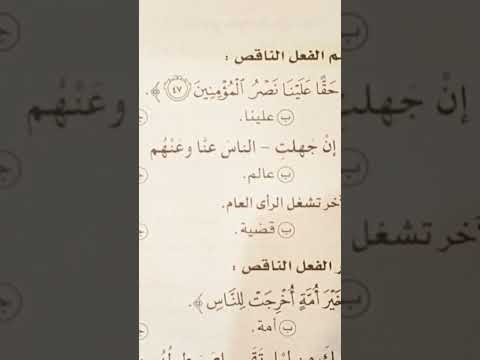 م الفعل الناقص :
حَقًّا عَلَيْنَا نَصْرُ الْمُؤْمِنِينَ ٤٧ ﴾.
ب علينا.
إنْ جَهلتِ – الناسَ عنّا وعَنْهُم
ب عالم.
آخر تشغل الرأى العام.
ب قضية.
ر الفعل الناقص :
خَيْرَ أُمَّةٍ أُخْرِجَتْ لِلنَّاسِ ﴾.
ب أمة.